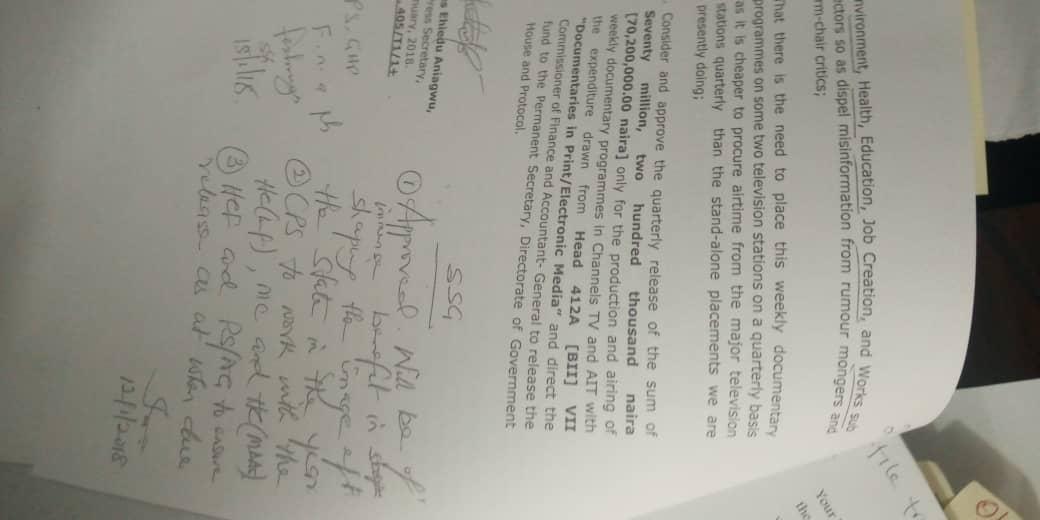 nvironment, Health, Education, Job Creation, and Works sub
ctors so as dispel misinformation from rumour mongers and
rm-chair critics;
hat there is the need to place this weekly documentary
programmes on some two television stations on a quarterly basis
as it is cheaper to procure airtime from the major television
stations quarterly than the stand-alone placements we are
presently doing;
Consider and approve the quarterly release of the sum of
Seventy million, two hundred thousand naira
[70,200,000.00 naira] only for the production and airing of
weekly documentary programmes in Channels TV and AIT with
the expenditure drawn from Head 412A [BII] VII
"Documentaries in Print/Electronic Media" and direct the
Commissioner of Finance and Accountant- General to release the
fund to the Permanent Secretary, Directorate of Government
House and Protocol.
s Ehiedu Aniagwu,
ress Secretary,
nuary, 2018.
.405/T1/1±
SSG
① Approved. Will be of
immense benefit in
shaping the image of
the State in the year
② CPS to work with the
me and the
③ HCF and to ensure
release as at when due
12/1/2018
PS, GHP
F. n. a
18/1/18.
file
Your
the